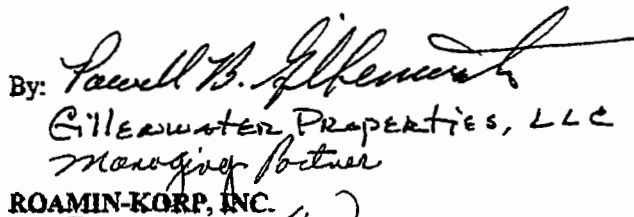 By: Powell B. Gillenwater
Gillenwater Properties, LLC
Managing Partner
ROAMIN-KORP, INC.